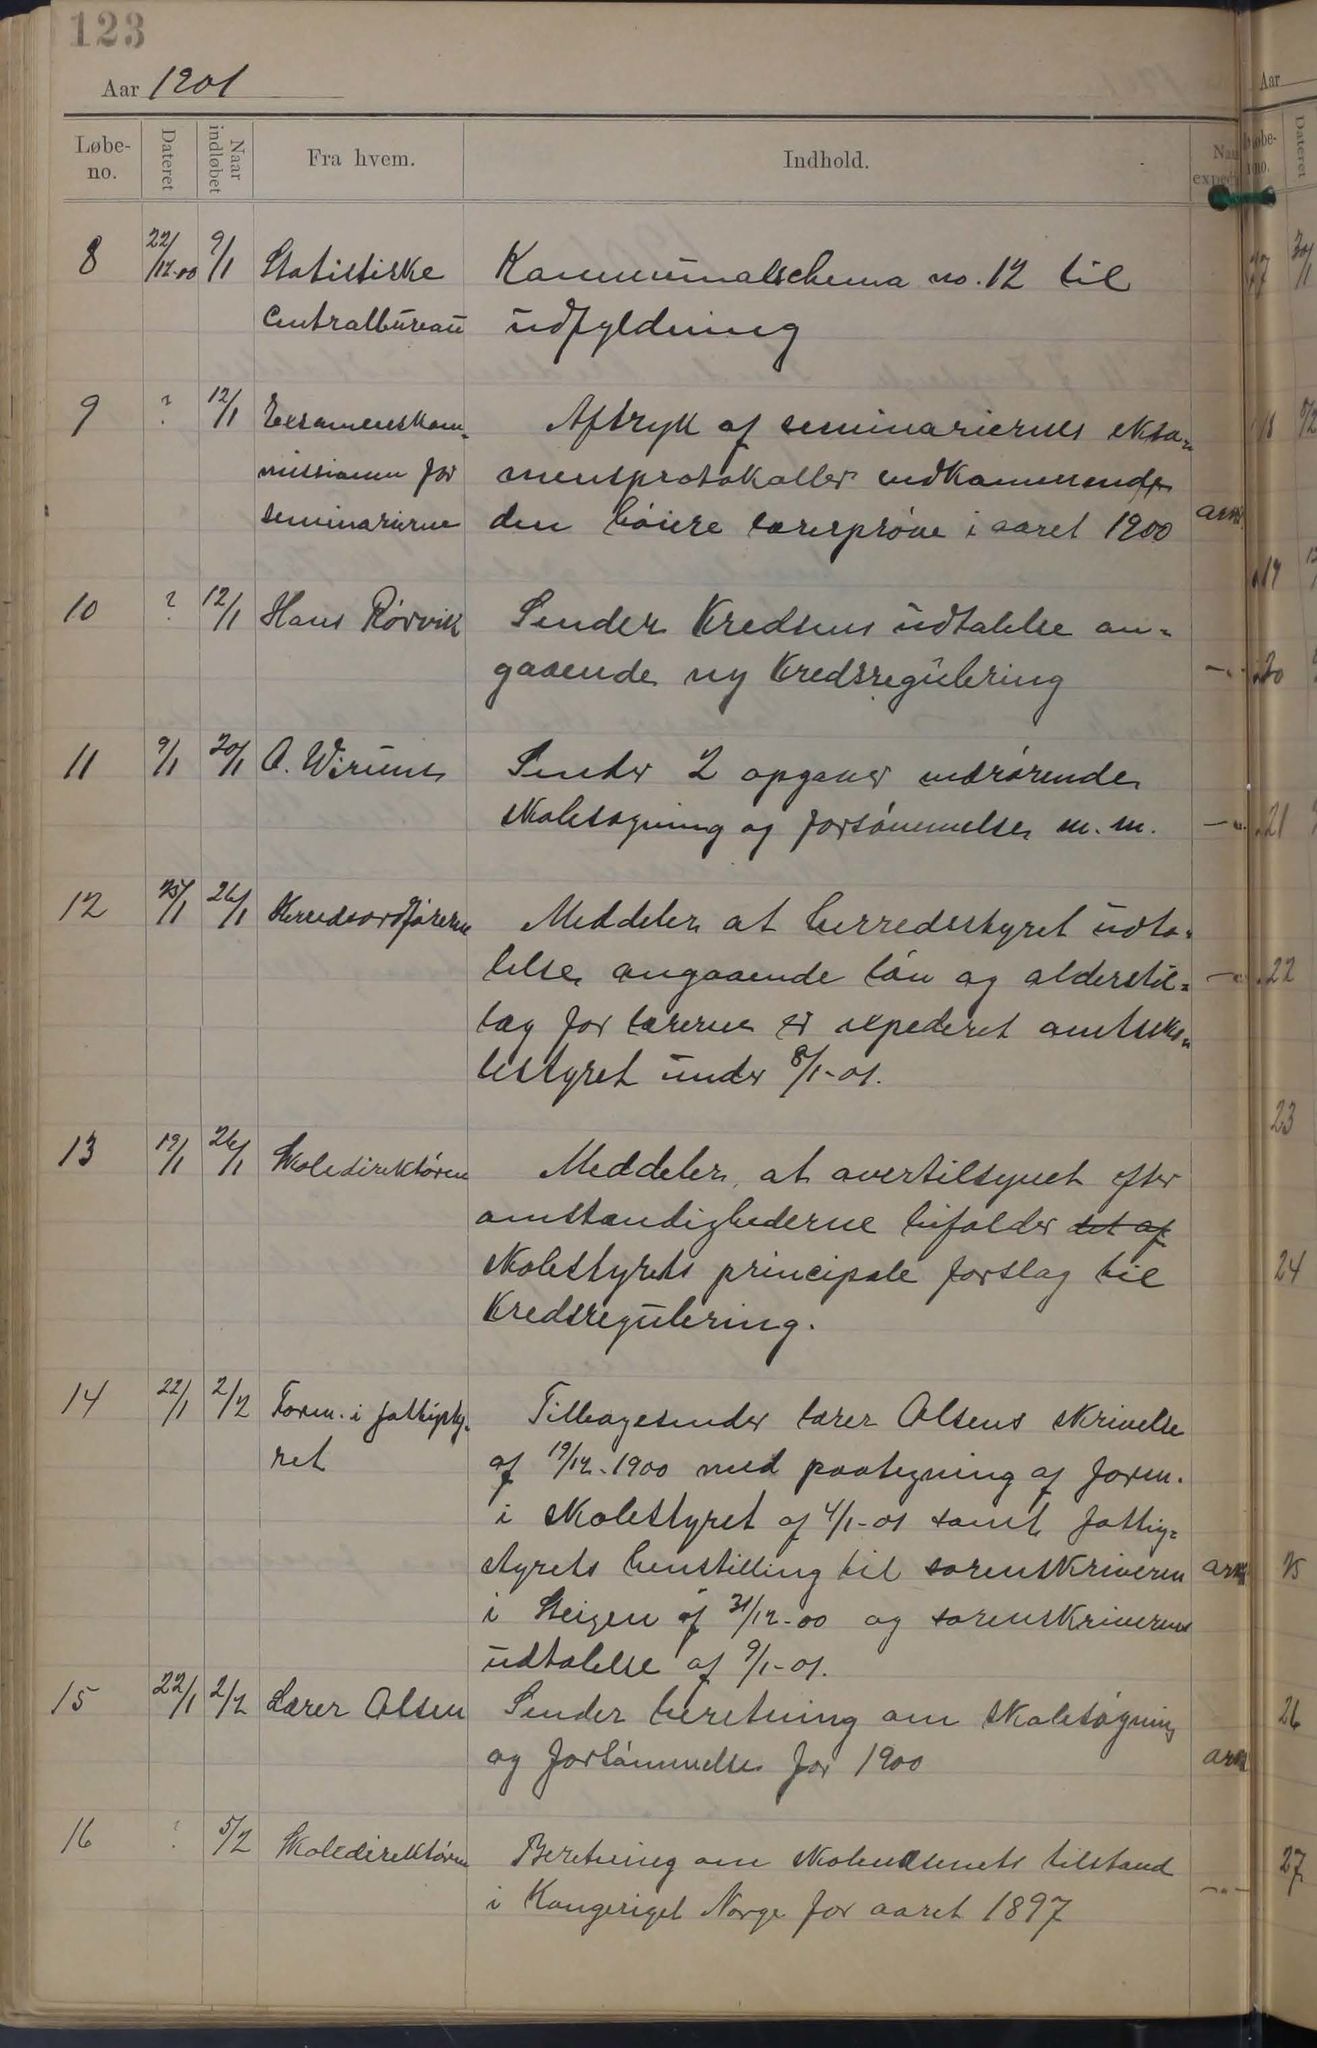 123
Aar 1901
Løbe-
no.
Dateret
Naar
indløbet
Fra hvem.
Indhold.
8 22/12-00 9/1 Statistiske Kommunalschema no. 12 til
Centralbureau udfyldning
9 ? 12/1 Eksamenskom- Aftryk af seminariernes eksa-
missionen for mensprotokoller vedkommende
seminarierne den høiere lærerprøve i aaret 1900 ark
10 ? 12/1 Hans Rørvik Sender Kredsens udtalelse an-
gaaende ny Kredsregulering -"-
11 9/1 20/1 Sender 2 opgaver vedrørende
skolesøgning og forsømmelse m. m. -"-
12 25/1 26/1 Herredsordføreren Meddeler at herredsstyret udta-
lelse angaaende løn og alderstil- -"-
læg for lærerne er expederet amtssko-
lestyret under 8/1-01.
13 19/1 26/1 Skoledirektøren Meddeler, at overtilsynet efter
omstændighederne bifalder det af
skolestyrets principale forslag til
Kredsregulering.
14 22/1 2/2 Form. i fattigsty- Tilbagesender lærer Olsens skrivelse
ret af 19/12-1900 med paategning af form.
i skolestyret af 4/1-01 samt fattig-
styrets henstilling til sorenskriveren ark
i Steigen af 31/12-00 og sorenskriverens
udtalelse af 9/1-01.
15 22/1 2/2 Lærer Olsen Sender beretning om skolesøgning
og forsømmelse for 1900 ark
16 ? 5/2 Skoledirektøren Beretning om skolevæsenets tilstand
i Kongeriget Norge for aaret 1897 -"-
Aar
Dateret
20
21
22
23
24
25
26
27